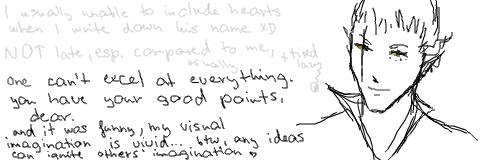 I usually unable to include hearts
when I write down his name XD
NOT late, esp. compared to me,
usually
+ tired
lazy
one can't excel at everything.
you have your good points,
dear.
and it was funny, my visual
imagination is vivid... btw, any ideas
can ignite others' imagination